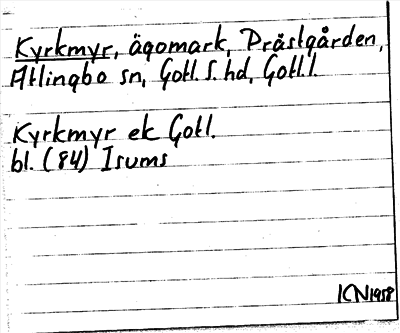 Kyrkmyr, ägomark, Prästgården,
Atlingbo sn, Gotl. S. hd, Gotl. l.
Kyrkmyr ek Gotl.
bl. (84) Isums
ICN 1958